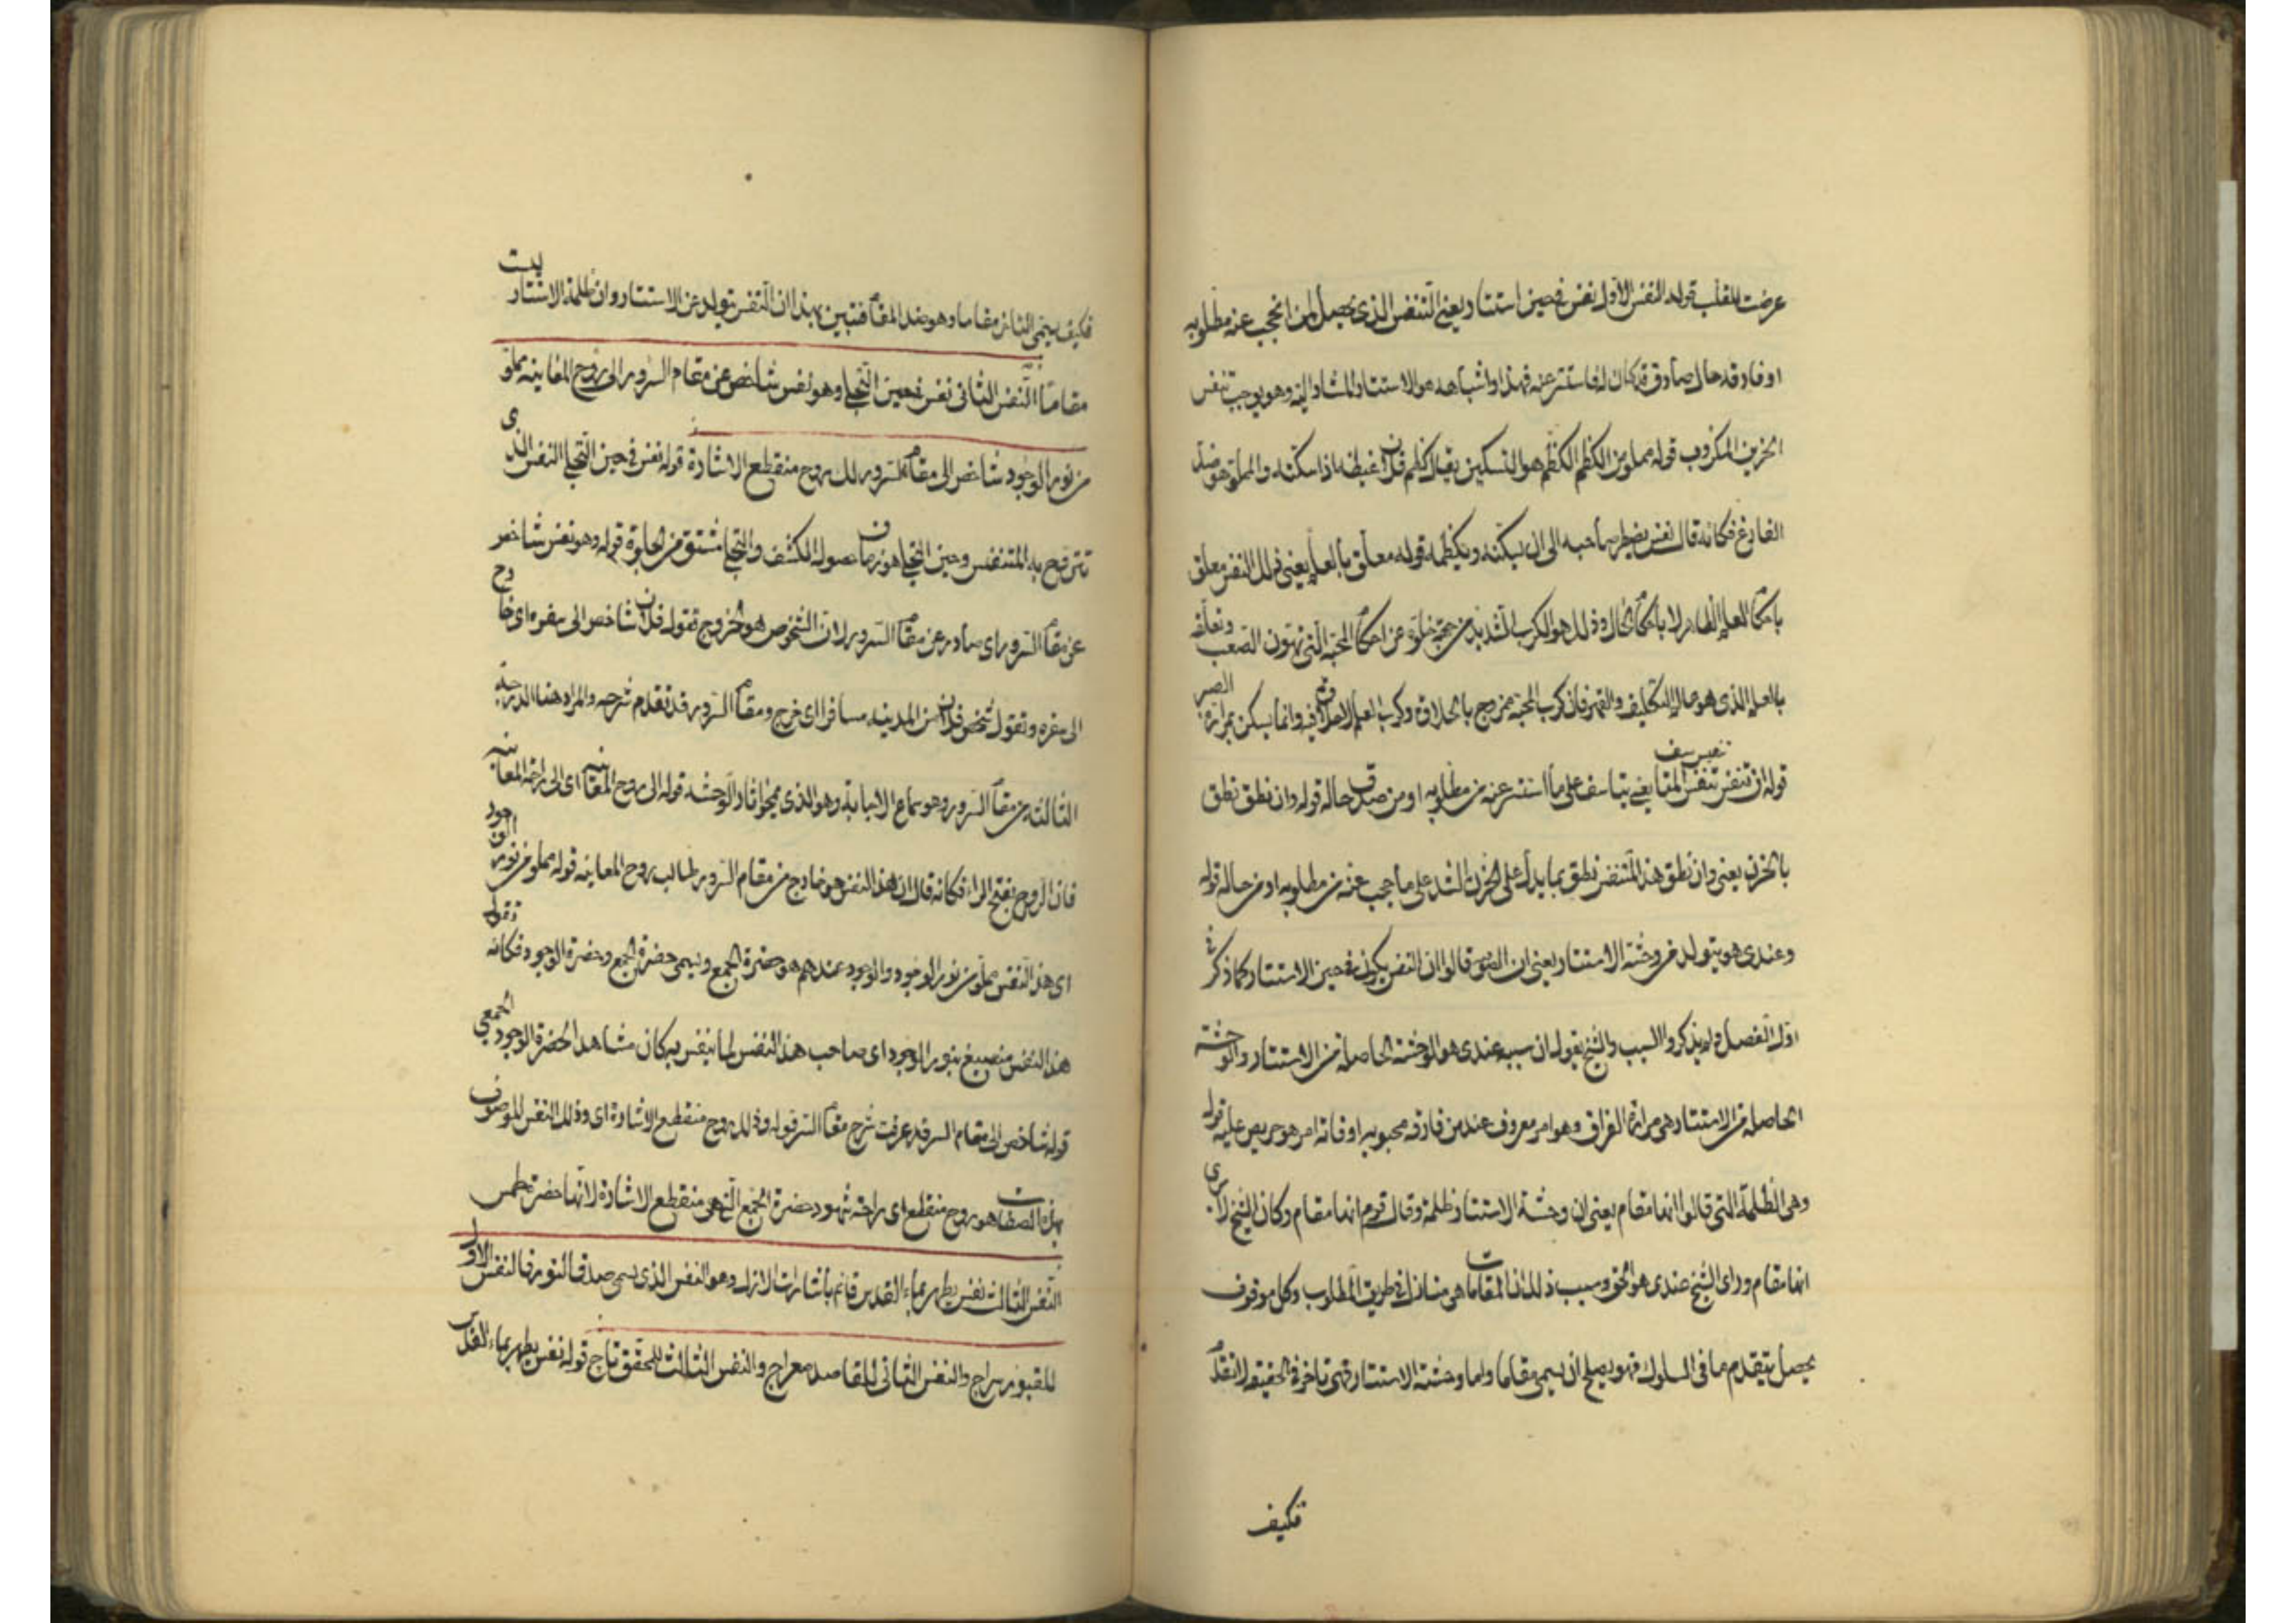 عرضت للقلب قوله النفس الاول نفس في حين استتار يعني التنفس الذي يحصل لمن انحجب عنه مطلوبه
او فارقه حال صادق قد كان له فاستتر عنه فهذا واشباهه هو الاستتار المشار اليه وهو يوجب تنفس
الحزين المكروب قوله مملو من الكظم الكظم هو التسكين يقال كظم فلان غيظه اذا سكنه والمملو هو ضد
الفارغ فكانه قال نفس يضطر صاحبه الى ان يسكنه ويكظمه قوله معلق بالعلم يعني ذلك النفس معلق
باحكام العلم الظاهر لا باحكام الحال وذلك هو الكرب الشديد من جهة خلوه عن احكام المحبة التي تهون الصعب وتعلقه
بالعلم الذي هو حال التكليف والقهر فان كرب المحبة ممزوج بالحلاوة وكرب العلم لا حلاوة فيه وانما يسكن بمرارة الصبر
قوله ان تنفس تنفس المتاسف يعني يتاسف على ما استتر عنه من مطلوبه او من صدق حاله قوله وان نطق نطق
بالحزن يعني وان نطق هذا المتنفس نطق بما يدل على الحزن الشد على ما حجب عنه من مطلوبه او من حاله قوله
وعندي هو يتولد من وحشة الاستتار يعني ان القوم قالوا ان النفس يكون في حين الاستتار كما ذكر في
اول الفصل ولم يذكروا السبب والشيخ يقول ان سببه عندي هو الوحشة الحاصلة من الاستتار والوحشة
الحاصلة من الاستتار هي مرارة الفراق وهو امر معروف عند من فارقه محبوبه او فاته امر هو حريص عليه قوله
وهي الظلمة التي قالوا انها مقام يعني ان وحشة الاستتار ظلمة وقال قوم انها مقام وكان الشيخ لا يرى
انها مقام وراى الشيخ عندي هو الحق وسبب ذلك ان المقامات هي منازل في طريق المطلوب وكل موقوف
يحصل بتقدم ما في السلوك فهو يصلح ان يسمى مقاما واما وحشة الاستتار فهي تاخر في الحقيقة لا تقدم
فكيف
فكيف يسمى الثاني مقاما وهو ضد المقام فتبين بهذا ان التنفس يتولد عن الاستتار وان ظلمة الاستتار ليست
مقاما النفس الثاني نفس في حين التجلي وهو نفس شاخص عن مقام السرور الى روح المعاينة مملو
من نور الوجود شاخص الى مقام السرور لك روح منقطع الاشارة قوله نفس في حين التجلي النفس الذي
تتروح به المتنفس وحين التجلي هو زمان حصول الكشف والتجلي مشتق من الجلوة قوله وهو نفس شاخص
عن مقام السرور اي صادر عن مقام السرور لان الشخوص هو الخروج تقول فلان شاخص الى سفره اي خارج
الى سفره وتقول شخص فلان من المدينة مسافرا اي خرج ومقام السرور قد تقدم شرحه والمراد هنا الدرجة
الثالثة من مقام السرور وهو سماع الاجابة وهو الذي يمحو اثار الوحشة قوله الى روح المعاينة اي الى راحة المعاينة
فان الروح بفتح الراء فكانه قال ان هذا النفس هو خارج من مقام السرور طالب روح المعاينة قوله مملو من نور الوجود
اي هذا النفس مملو من نور الوجود والوجود عندهم هو حضرة الجمع ويسمى حضرة الجمع وحضرة الوجود فكانه تقول
هذا النفس منصبغ بنور الوجود اي صاحب هذا النفس لما تنفس به كان مشاهدا لحضرة الوجود الجمعي
قوله شاخص الى مقام السر قد عرفت شرح مقام السر قوله وذلك روح منقطع الاشارة اي وذلك النفس الموصوف
بهذه الصفات هو روح منقطع اي راحة شهود حضرة الجمع التي هي منقطع الاشارة لانها حضرة طمس
النفس الثالث نفس يطهر بماء القدس قائم باشارات الازل وهو النفس الذي يسمى صدق النور فالنفس الاول
للمقبور سراج والنفس الثاني للقاصد معراج والنفس الثالث للمحقق تاج قوله نفس يطهر بماء القدس